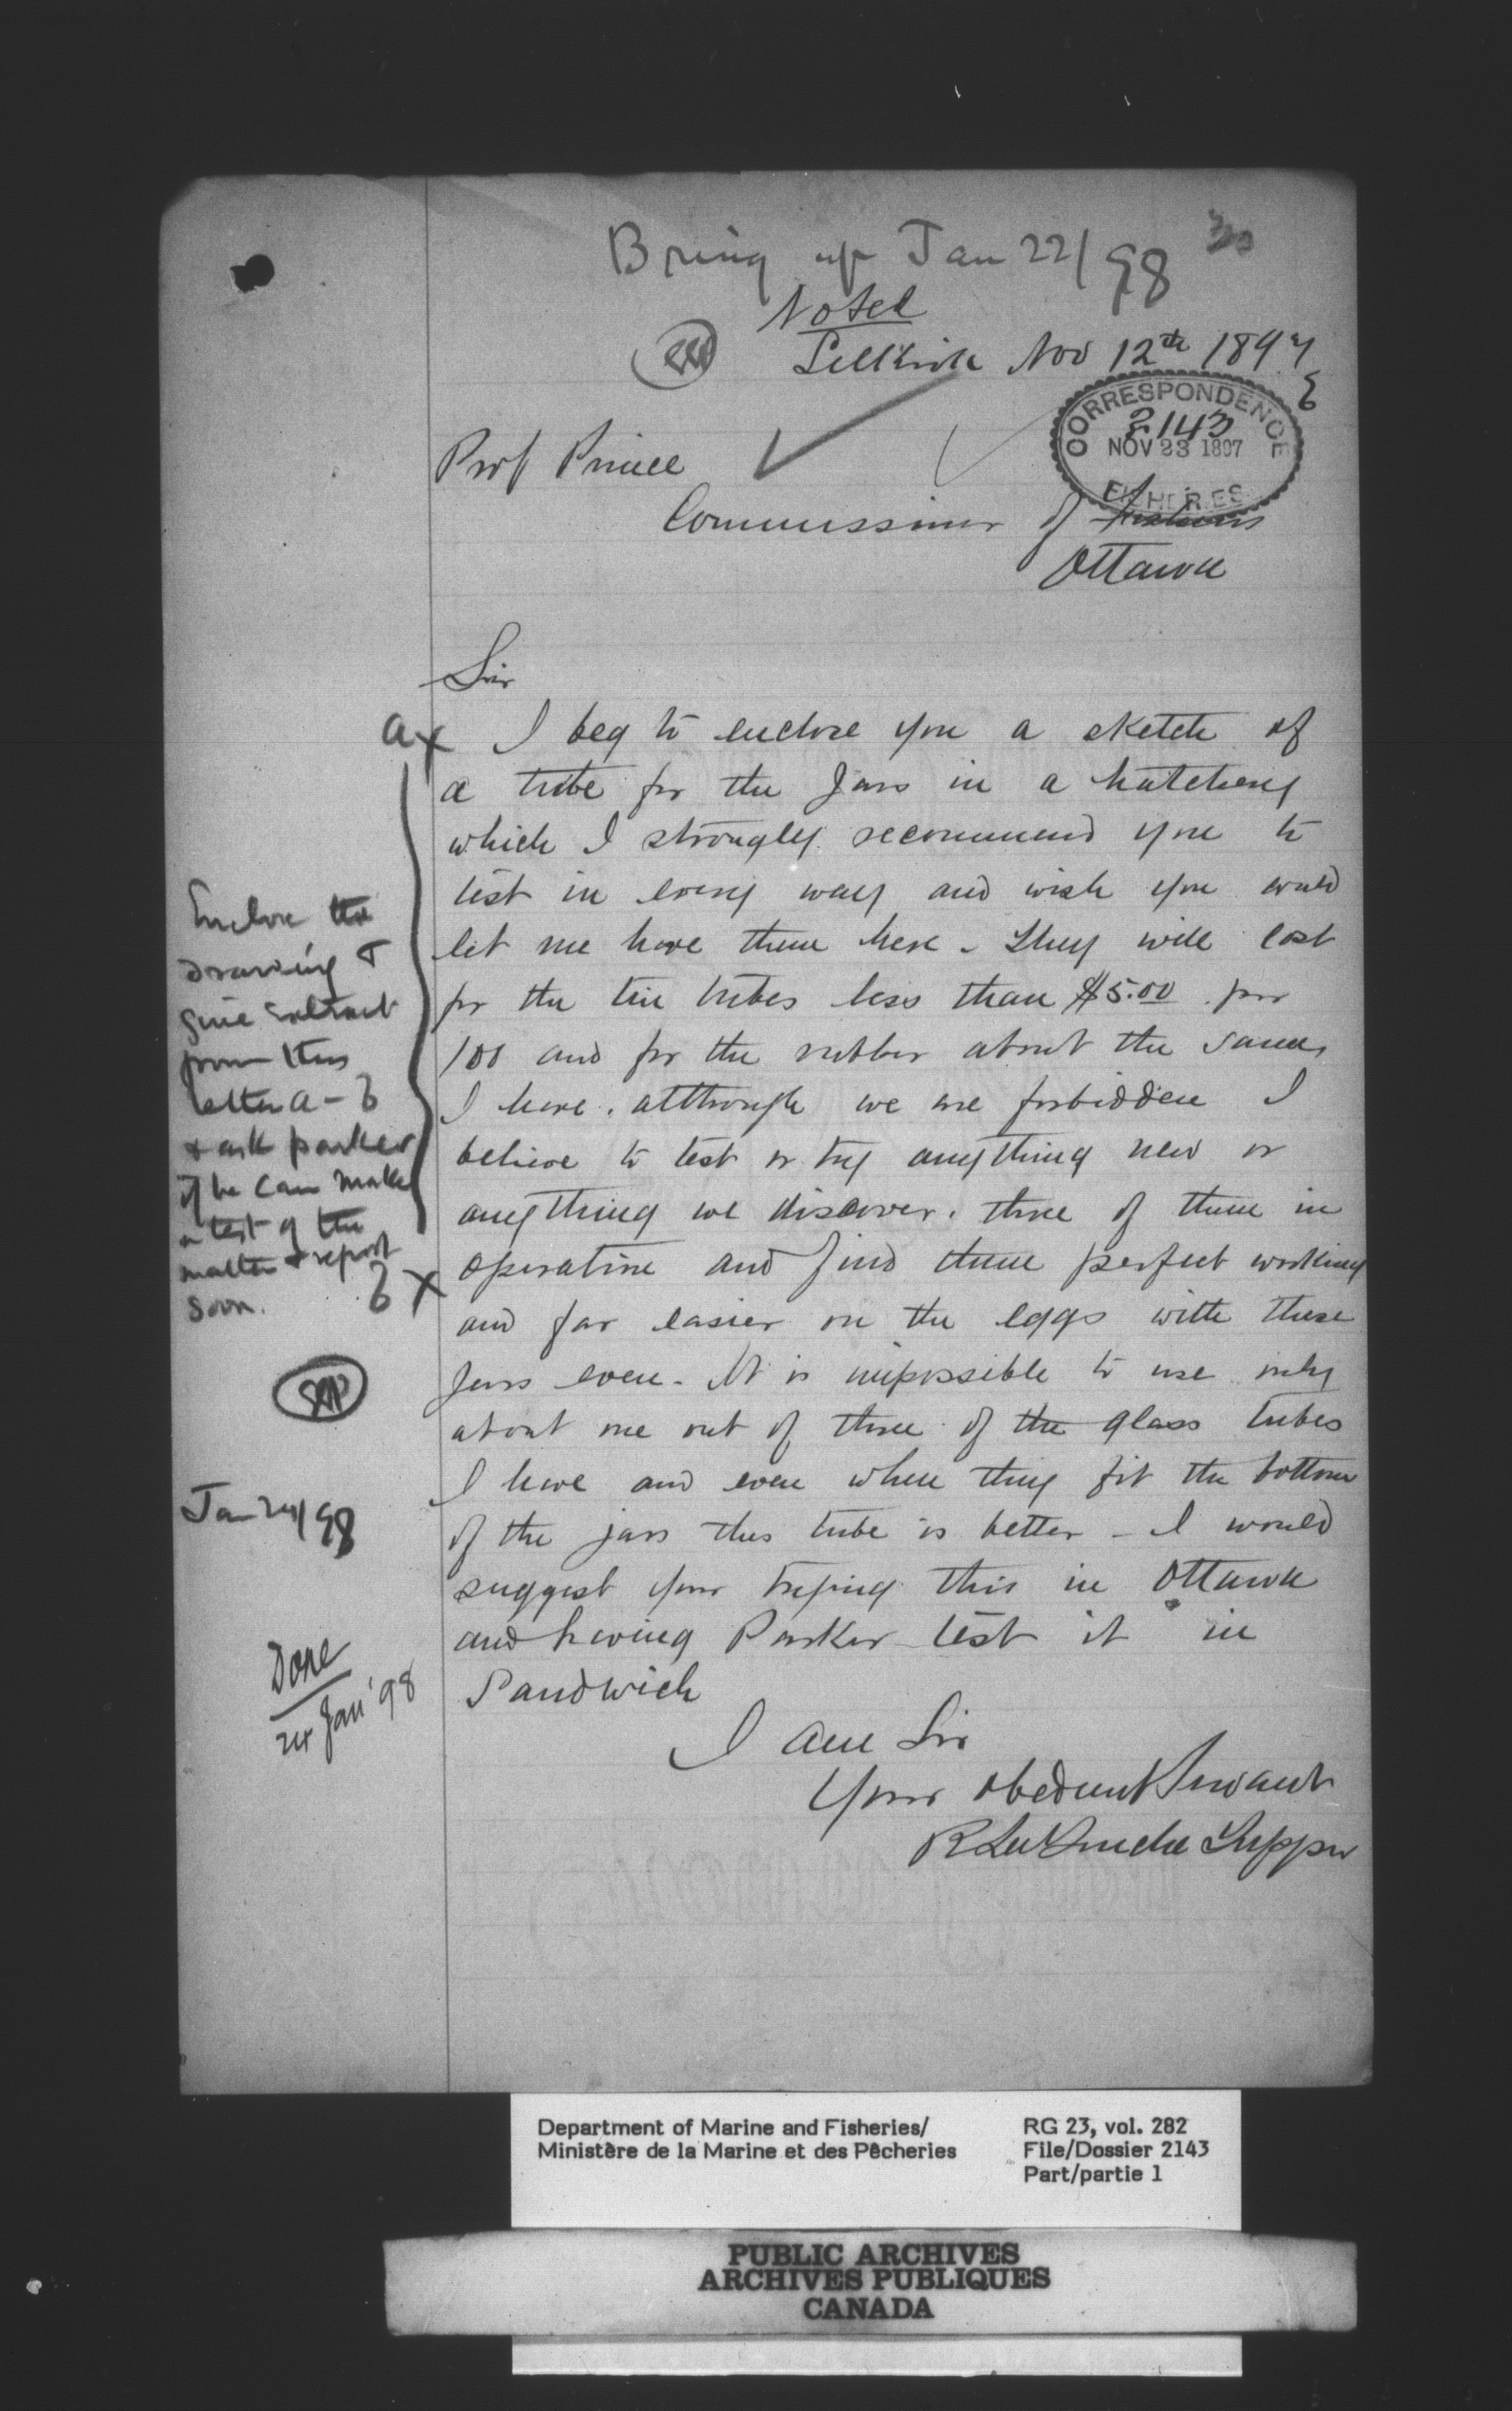 Bring up Jan 22/98
Noted
Selkirk Nov 12th 1897
CORRESPONDENCE
2143
NOV 23 1897
FISHERIES
Prof Prince
Commissioner of Fisheries
Ottawa
Sir
a x I beg to enclose you a sketch of
a tube for the Jars in a hatchery
which I strongly recommend you to
test in every way and wish you could
let me have them here - They will cost
for the tin tubes less than $5.00 per
100 and for the rubber about the same,
I have, although we are forbidden I
believe to test or try anything new or
anything we discover, three of them in
operation and find them perfect working
and far easier on the eggs with these
Jars even - It is impossible to use only
about one out of three of the glass tubes
I have and even when they fit the bottom
of the jars this tube is better - I would
suggest your trying this in Ottawa
and having Parker test it in
Sandwich
I am Sir
Your obedient Servant
R LaTouche Tupper
Enclose the
drawing &
give extract
from this
letter a - b
& ask parker
if he can make
a test of the
matter & report
soon.
b x
Jan 24/98
Done
24 Jan '98
Department of Marine and Fisheries/
Ministère de la Marine et des Pêcheries
RG 23, vol. 282
File/Dossier 2143
Part/partie 1
PUBLIC ARCHIVES
ARCHIVES PUBLIQUES
CANADA